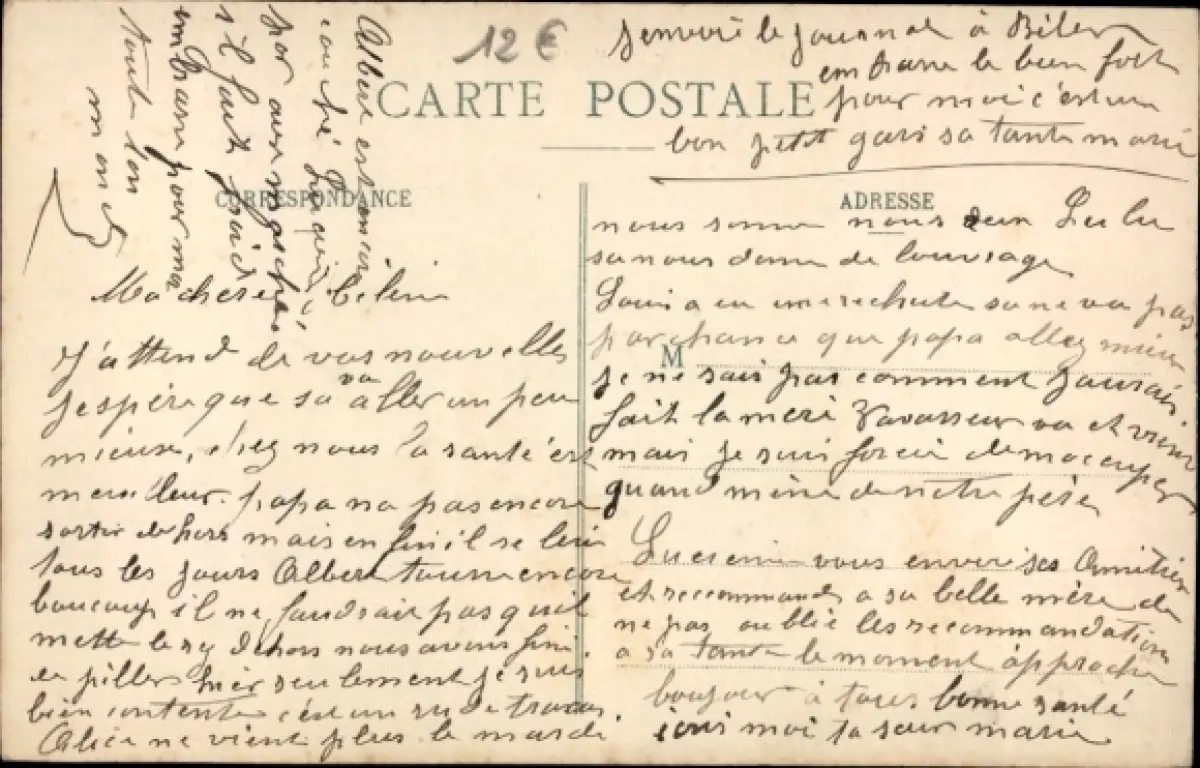 12 €
CARTE POSTALE
CORRESPONDANCE
ADRESSE
M
Ma chère Céline
J'attend de vos nouvelles
j'espère que sa va aller un peu
mieux, chez nous la santé est
meilleur. papa na pas encore
sortie dehors mais enfin il se lève
tous les jours Albert tousse encore
boucoup il ne faudrait pas quil
mette le dehors nous avons fini
hier seulement je suis
bien contente c'est un rude travail
Alice ne vient plus le mardi
nous somme nous deux Lulu
sa nous donne de louvrage
Louis a eu une rechute sa ne va pas
par chance que papa allez mieux
je ne sais pas comment jaurais
fait la mère Vavasseur va et vient
mais je suis forcée de moccuper
quand même de notre père
Lucienne vous envoie ses Amitiés
et recommande a sa belle mère de
ne pas oublié les recommandations
a sa tante le moment approche
bonjour à tous bonne santé
moi ta sœur marie
J'envoie le journal à
embrasse le bien fort
pour moi c'est un
bon petit gars sa tante marie
Albert est
couché
s'il fait froid
embrasse pour moi
toute ton
monde